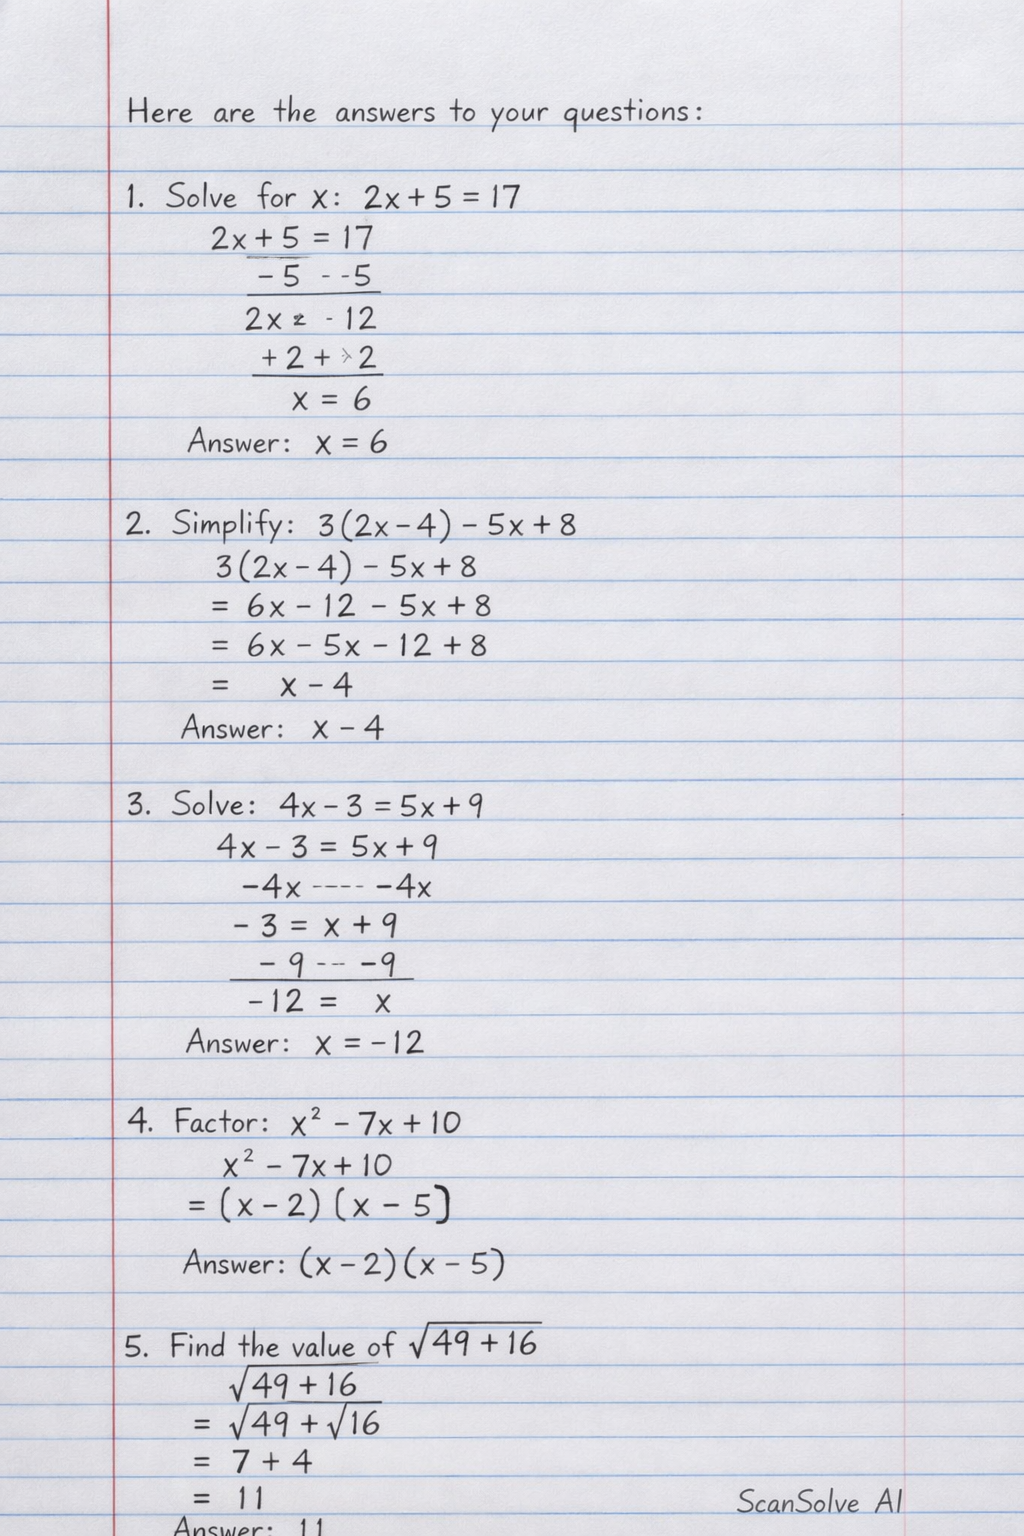 Here are the answers to your questions:
1. Solve for x: 2x + 5 = 17
2x + 5 = 17
- 5 - -5
2x - 12
+ 2 + 2
x = 6
Answer: x = 6
2. Simplify: 3(2x - 4) - 5x + 8
3(2x - 4) - 5x + 8
= 6x - 12 - 5x + 8
= 6x - 5x - 12 + 8
= x - 4
Answer: x - 4
3. Solve: 4x - 3 = 5x + 9
4x - 3 = 5x + 9
-4x ---- -4x
- 3 = x + 9
- 9 -- -9
-12 = x
Answer: x = -12
4. Factor: x² - 7x + 10
x² - 7x + 10
= (x - 2) (x - 5]
Answer: (x - 2)(x - 5)
5. Find the value of √49 + 16
√49 + 16
= √49 + √16
= 7 + 4
= 11
Answer: 11
ScanSolve AI